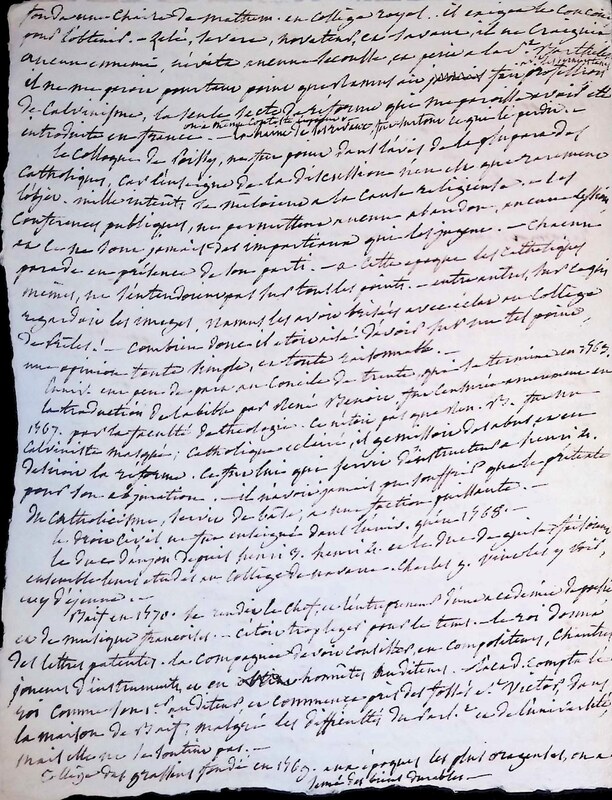 fonda une Chaire de mathem. en Collège royal.. il exigea le Concours
pour l'obtenir. - Zélé, sévère, novateur, et savant, il ne craignit
aucun ennemi, évita aucune secousse, et périt à la St. Barthel.
il ne me paroit pourtant point que Ramus ait jamais fait profession
de Calvinisme, la seule secte de réforme que me paroisse avoir été
introduite en france. - la haine de ses rivaux fut surtout ce qui le perdit. -
le Colloque de Poissy, ne fut point dans les vœux de la plupart des
Catholiques, car l'enseigne de la discussion n'en est que rarement
l'objet. mille intérêts se mêloient à la cause religieuse. - Les
Conférences publiques, ne permettent aucun abandon, aucune cession
et ce ne sont jamais des impartiaux qui les jugent. - Chacun
parade en présence de son parti. - à cette époque les Catholiques
mêmes, ne s'entendoient pas sur tous les points. - entre autres, sur ce qui
regardoit les images, Ramus les avoit brisées avec éclat au Collège
de Presles! - Combien donc il étoit aisé d'avoir sur un tel point,
une opinion toute simple, et toute raisonnable. -
l'univ. eut peu de part au Concile de trente, qui se termina en 1563
la traduction de la bible par René Benoit fut censurée amèrement en
1567. par la faculté de théologie. Ce n'étoit pas que René B. fut un
Calviniste masqué; Catholique éclairé, il gémissoit des abus, et en
desiroit la réforme. Ce fut lui qui servit d'instructeur à henri 4.
pour son abjuration. - il n'avoit jamais pu souffrir que le prétexte
du Catholicisme, servit de base, à une faction puissante. -
le droit Civil ne fut enseigné dans l'univ. qu'en 1568. -
le duc d'anjou depuis henri 3. henri 4. et le duc de guise faisoient
ensemble leurs études au Collège de navarre. Charles 9. vint les y voir,
et y déjeuna. -
Baif en 1570. se rendit le chef, et l'entrepreneur d'une académie de poësie
et de musique françoises. - c'étoit trop léger pour le tems. - le roi donna
des lettres patentes. la Compagnie devoit consister en Compositeurs, Chantres
joueurs d'instruments, et en honnêtes auditeurs. - l'acad. compta le
roi comme son 1er auditeur, et commença près des fossés St. Victor, dans
la maison de Baif, malgré les difficultés du Parl.t et de l'université,
mais elle ne se soutint pas. -
Collège des grassins fondé en 1569. aux époques les plus orageuses, on a
semé des biens durables. -